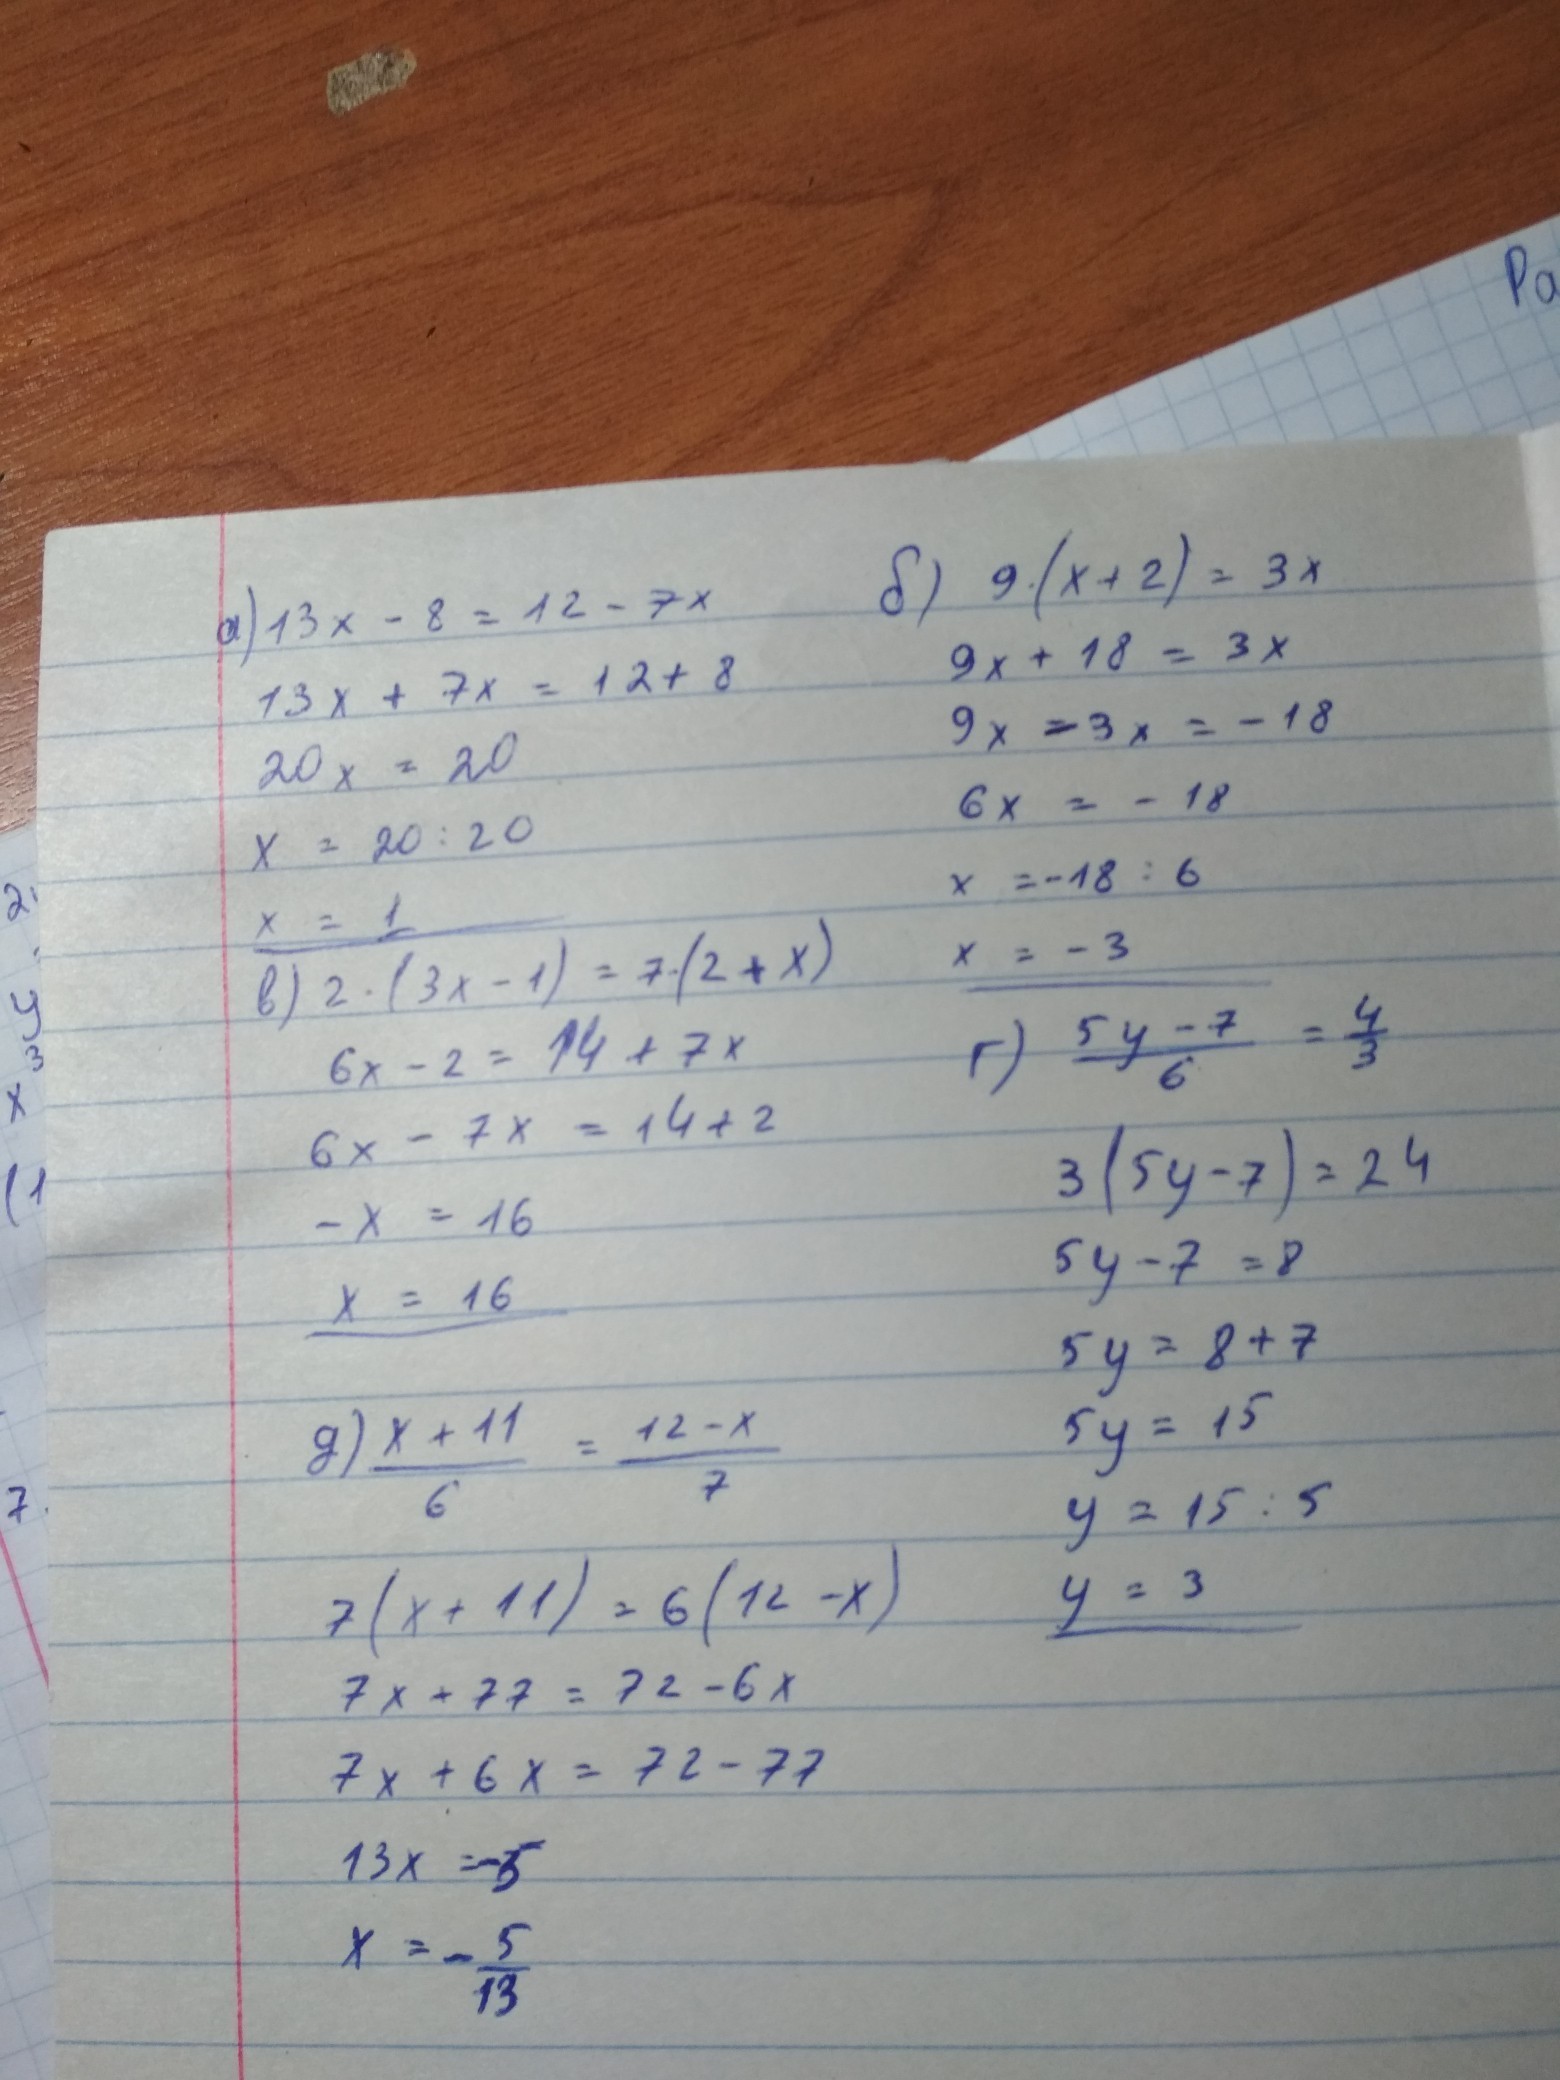 Ра
а) 13x - 8 = 12 - 7x
13x + 7x = 12 + 8
20x = 20
x = 20 : 20
x = 1
б) 9·(x+2) = 3x
9x + 18 = 3x
9x - 3x = -18
6x = -18
x = -18 : 6
x = -3
в) 2·(3x-1) = 7·(2+x)
6x - 2 = 14 + 7x
6x - 7x = 14 + 2
-x = 16
x = 16
г) \frac{5y-7}{6} = \frac{4}{3}
3(5y-7) = 24
5y - 7 = 8
5y = 8 + 7
5y = 15
y = 15 : 5
y = 3
д) \frac{x+11}{6} = \frac{12-x}{7}
7(x+11) = 6(12-x)
7x + 77 = 72 - 6x
7x + 6x = 72 - 77
13x = -5
x = -\frac{5}{13}
2
y
x³
(1
7